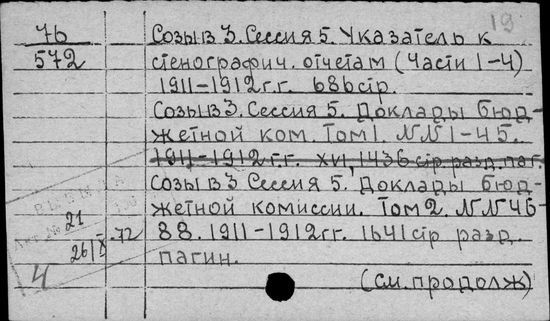 19
76
572
Созыв 3. Сессия 5. Указатель к
стенографич. отчетам (Части 1-4)
1911-1912 г.г. 686 стр.
Созыв 3. Сессия 5. Доклады бюд-
жетной ком. Том 1. NN 1-45.
1911-1912 г.г. XVI, 1436 стр разд. паг.
Созыв 3 Сессия 5. Доклады бюд-
жетной комиссии. Том 2. NN 46-
88. 1911-1912 гг. 1641 стр разд.
пагин.
(см. продолж)
21
26/X-72
4